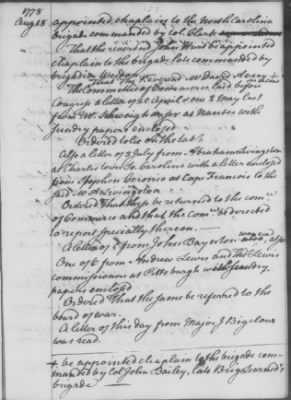 1778
Aug 18
appointed chaplain to the North Carolina
brigade commanded by col Clark
That the reverend John Hurt be appointed
chaplain to the brigade late commanded by
brigadier Weedon
That the Reverend Mr David Avery +
The Committee of Commerce laid before
Congress a letter of 25 April one 2 May last
from Mr Schweighauser at Nantes with
sundry papers enclosed
Ordered to lie on the table
Also a letter of 3 July from Abraham Livingston
at Charles town So Carolina with a letter enclosed
from Stephen Ceronio at Cape Francois to the
said Mr Livingston
Ordered That these be returned to the com.ee
of Commerce and that the com.ee be directed
to report specially thereon
A letter of 7 from John Bayeton was read also
One of 6 from Andrew Lewis and Tho Lewis
commissioners at Pittsburgh with sundry
papers enclosed
Ordered That the same be referred to the
board of war.
A letter of this day from Major J Bigelow
was read.
+ be appointed chaplain to the brigade com-
manded by Col John Bailey, late Brig Learned's
brigade